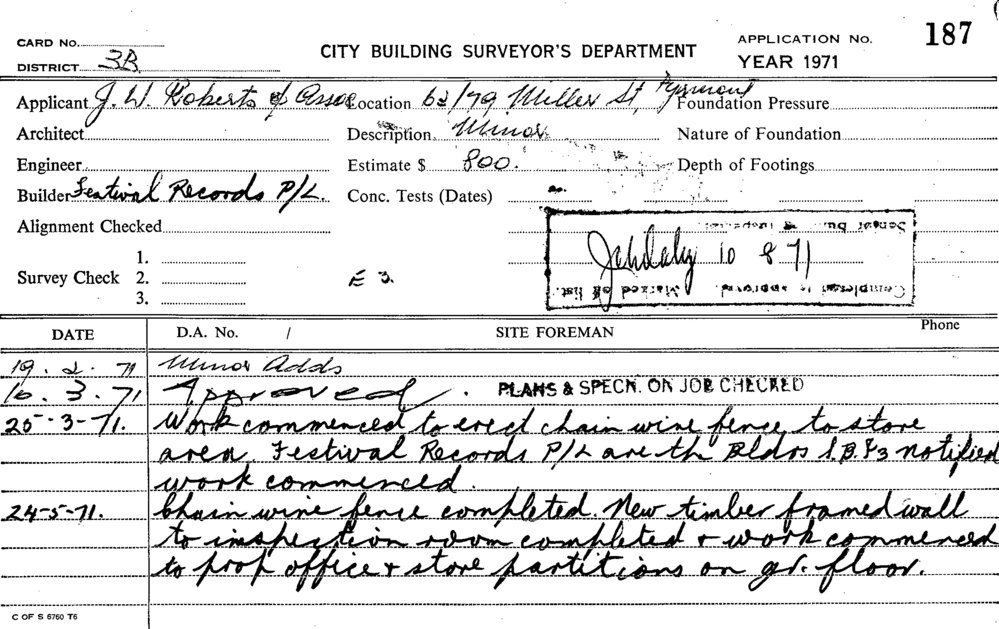 187
CARD No.
APPLICATION No.
CITY BUILDING SURVEYOR'S DEPARTMENT
DISTRICT 3B
YEAR 1971
Applicant J. W. Roberts & Assoc Location 62/79 Miller St, Pyrmont Foundation Pressure
Architect Description Minor Nature of Foundation
Engineer Estimate $ 800. Depth of Footings
Builder Festival Records P/L. Conc. Tests (Dates)
Alignment Checked
10 8 71
1.
Survey Check 2. E 3.
3.
Completed as approved. Marked off list.
DATE D.A. No. / SITE FOREMAN Phone
19. 2. 71 Minor Adds
16. 3. 71 Approved. PLANS & SPECN. ON JOB CHECKED
25-3-71. Work commenced to erect chain wire fence to store
area. Festival Records P/L are the Bldrs notified
work commenced.
24-5-71. Chain wire fence completed. New timber framed wall
to inspection room completed & work commenced
to prop office & store partitions on gr. floor.
C OF S 6760 T6